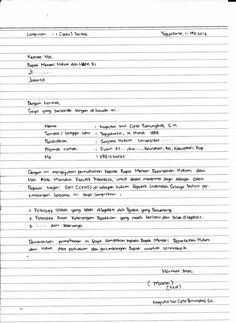 Lampiran : 1 (satu) berkas Yogyakarta, 11 Mei 2013
Kepada Yth.
Bapak Menteri Hukum dan HAM RI
Jl. ......
Jakarta
Dengan hormat,
Saya yang bertanda tangan di bawah ini :
Nama : Nugroho Nur Cipto Pamungkas, S.H.
Tempat / tanggal lahir : Yogyakarta, Maret 1988
Pendidikan : Sarjana Hukum Universitas
Alamat rumah : Dusun RT... /RW..., Kelurahan, Kec, Kabupaten, Prov
Hp :
Dengan ini mengajukan permohonan kepada Bapak Menteri Departemen Hukum dan
Hak Asasi Manusia Republik Indonesia, untuk dapat menerima saya sebagai Calon
Pegawai Negeri Sipil (CPNS) di Hukum Republik Indonesia. Sebagai bahan per-
timbangan bersama ini saya lampirkan :
1. Fotocopy Ijazah yang telah dilegalisir oleh Pejabat yang berwenang.
2. Fotocopy Surat Keterangan Kepolisian yang masih berlaku dan telah dilegalisir.
3. ..... dan seterusnya
Demikianlah permohonan ini Saya sampaikan kepada Bapak Menteri Departemen Hukum
dan HAM. Atas perhatian dan pertimbangan Bapak ucapkan terimakasih.
Hormat saya,
(Materai)
(ttd)
Nugroho Nur Cipto Pamungkas, S.H.